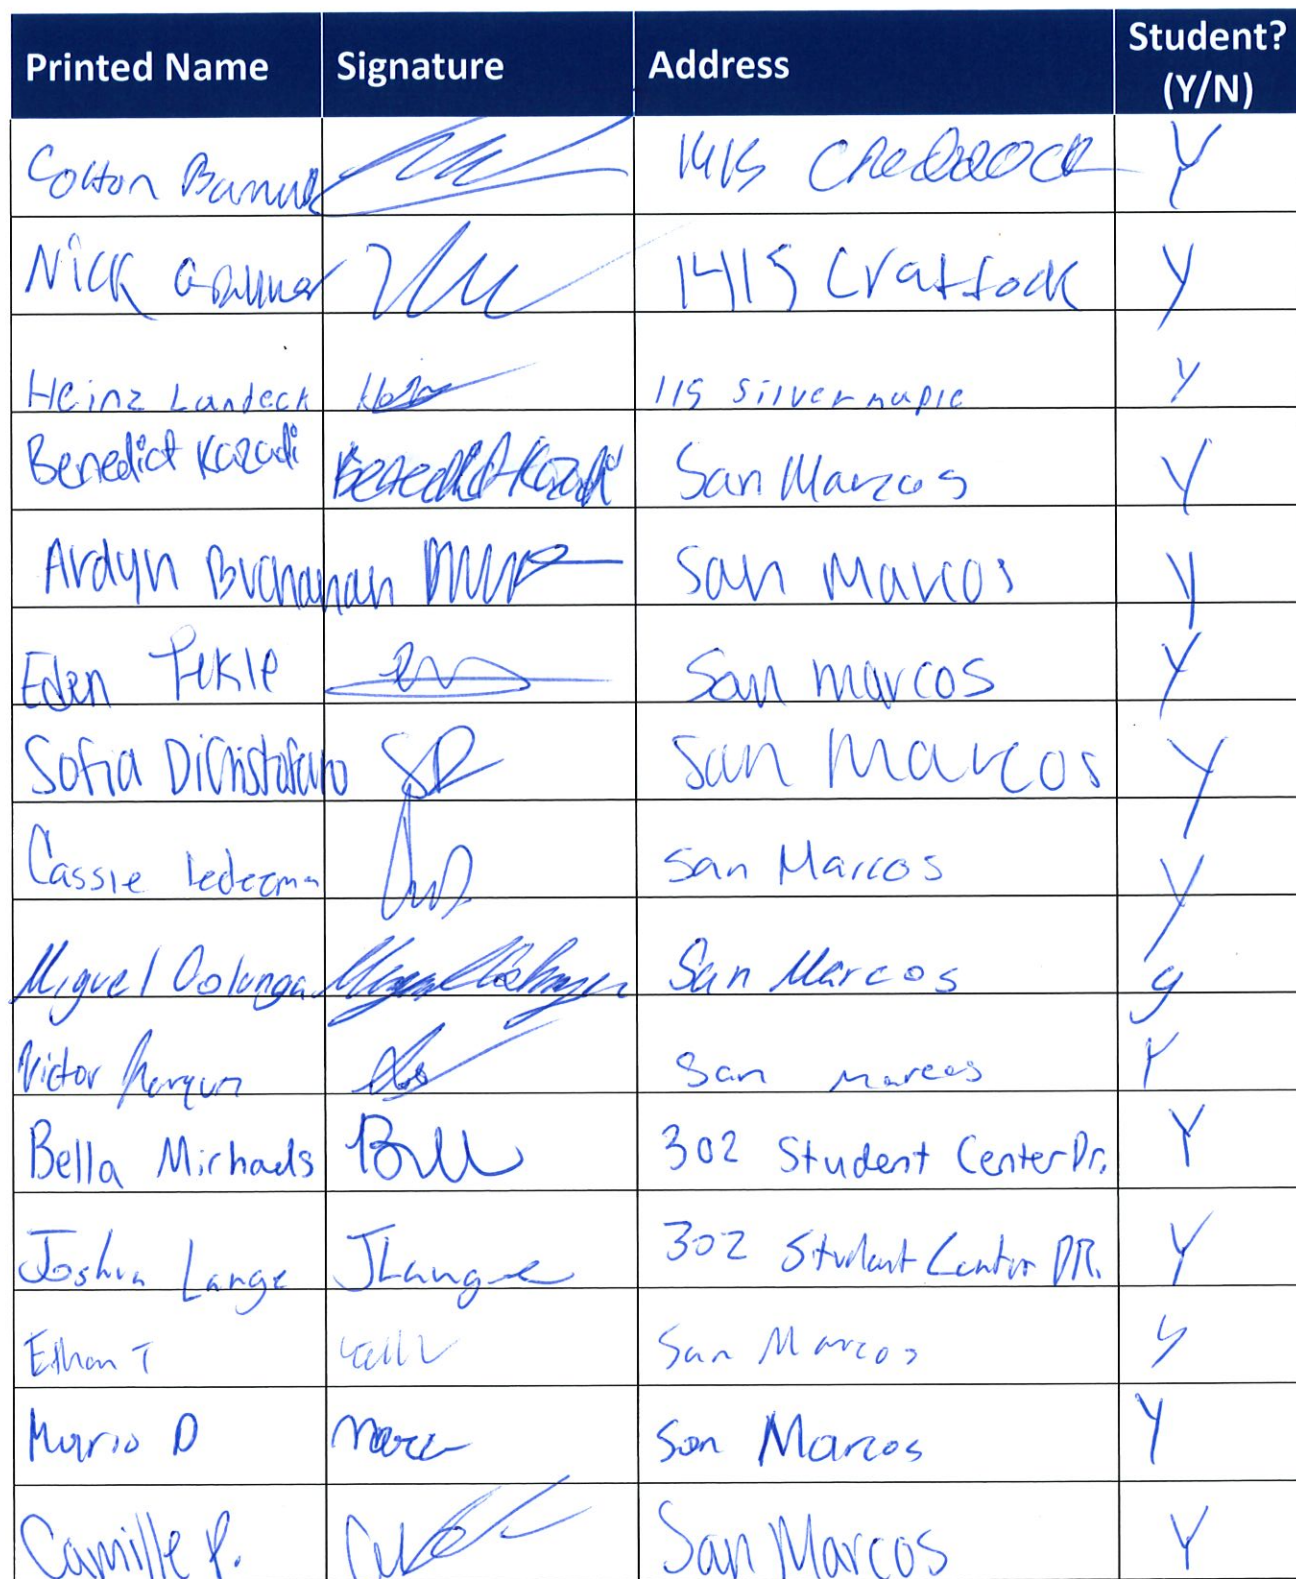 Printed Name Signature Address Student? (Y/N)
Colton 1415 Y
Nick 1415 Craffock Y
Heinz Landeck 115 Silver maple Y
Benedict Kazadi Benedict Kazadi San Marcos Y
Ardyn Buchanan San Marcos Y
Eden Tekle San Marcos Y
Sofia DiCristofaro SD San Marcos Y
Cassie Ledezma San Marcos Y
Miguel Oolunga San Marcos y
Victor San Marcos Y
Bella Michaels 302 Student Center Dr. Y
Joshua Lange JLange 302 Student Center DR. Y
Ethan T San Marcos y
Mario D San Marcos Y
Camille P. San Marcos Y